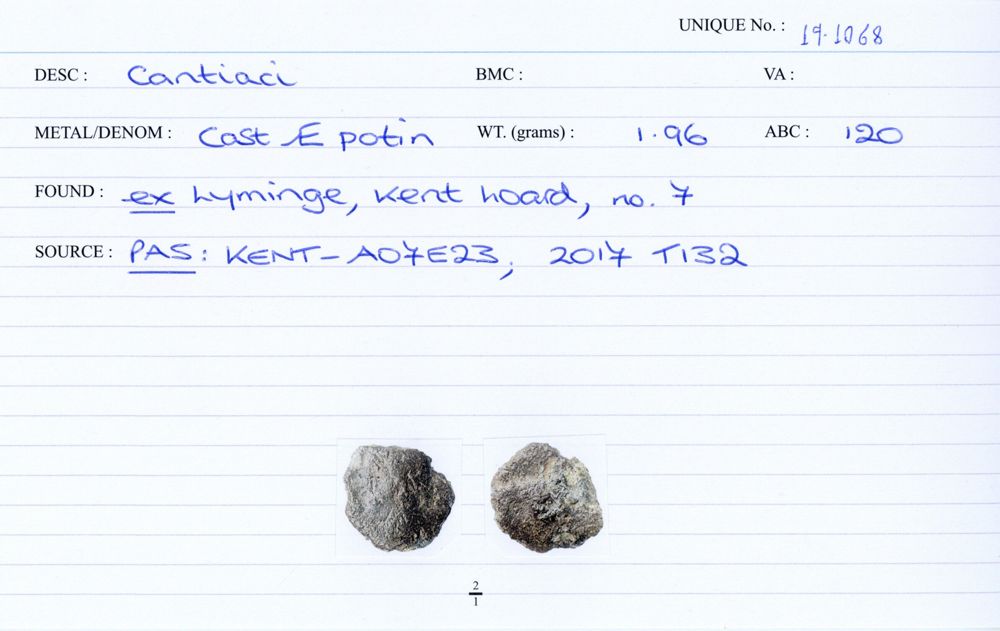 UNIQUE No. : 19.1068
DESC : Cantiaci BMC : VA :
METAL/DENOM : Cast Æ potin WT. (grams) : 1.96 ABC : 120
FOUND : ex Lyminge, Kent hoard, no. 7
SOURCE : PAS: KENT-A07E23; 2017 T132
2
1